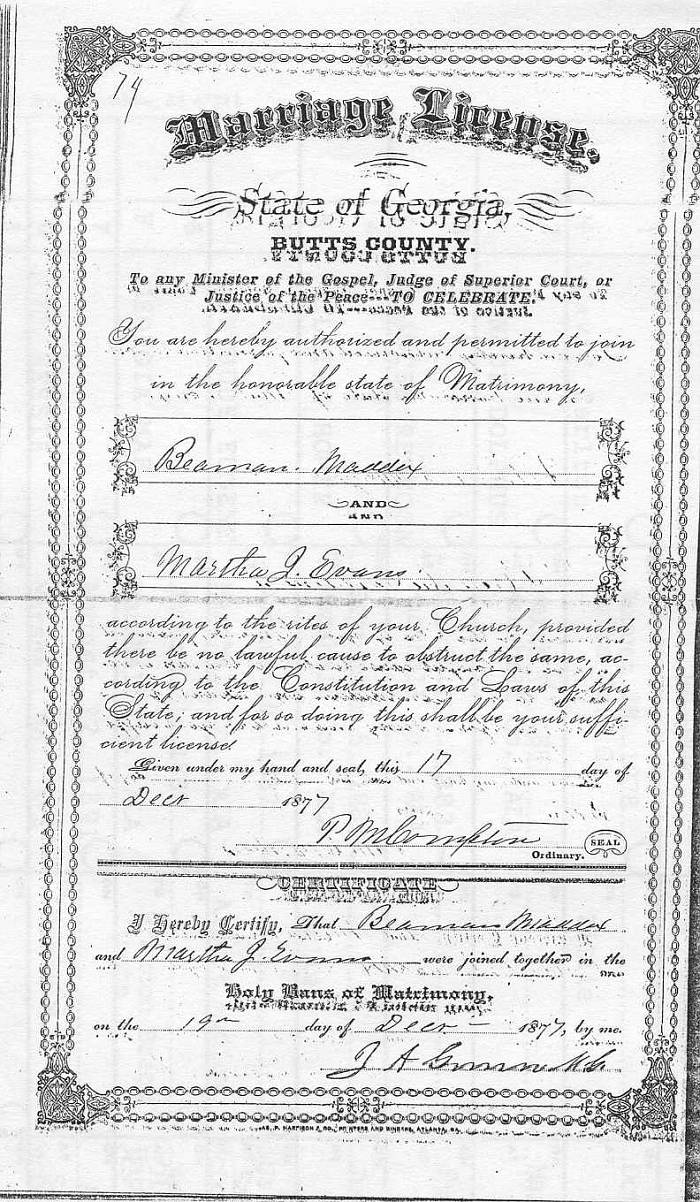 74
Marriage License.
State of Georgia,
BUTTS COUNTY.
To any Minister of the Gospel, Judge of Superior Court, or
Justice of the Peace---TO CELEBRATE:
You are hereby authorized and permitted to join
in the honorable state of Matrimony,
Beaman. Maddox
AND
Martha J. Evans
according to the rites of your Church, provided
there be no lawful cause to obstruct the same, ac-
cording to the Constitution and Laws of this
State; and for so doing this shall be your suffi-
cient license
Given under my hand and seal, this 17 day of
Decr 1877
P M Compton
SEAL
Ordinary.
CERTIFICATE
I Hereby Certify, That Beaman Maddox
and Martha J. Evans were joined together in the
Holy Bans of Matrimony,
on the 19th day of Decr 1877, by me.
J A
JAS. P. HARRISON & CO., PRINTERS AND BINDERS, ATLANTA, GA.